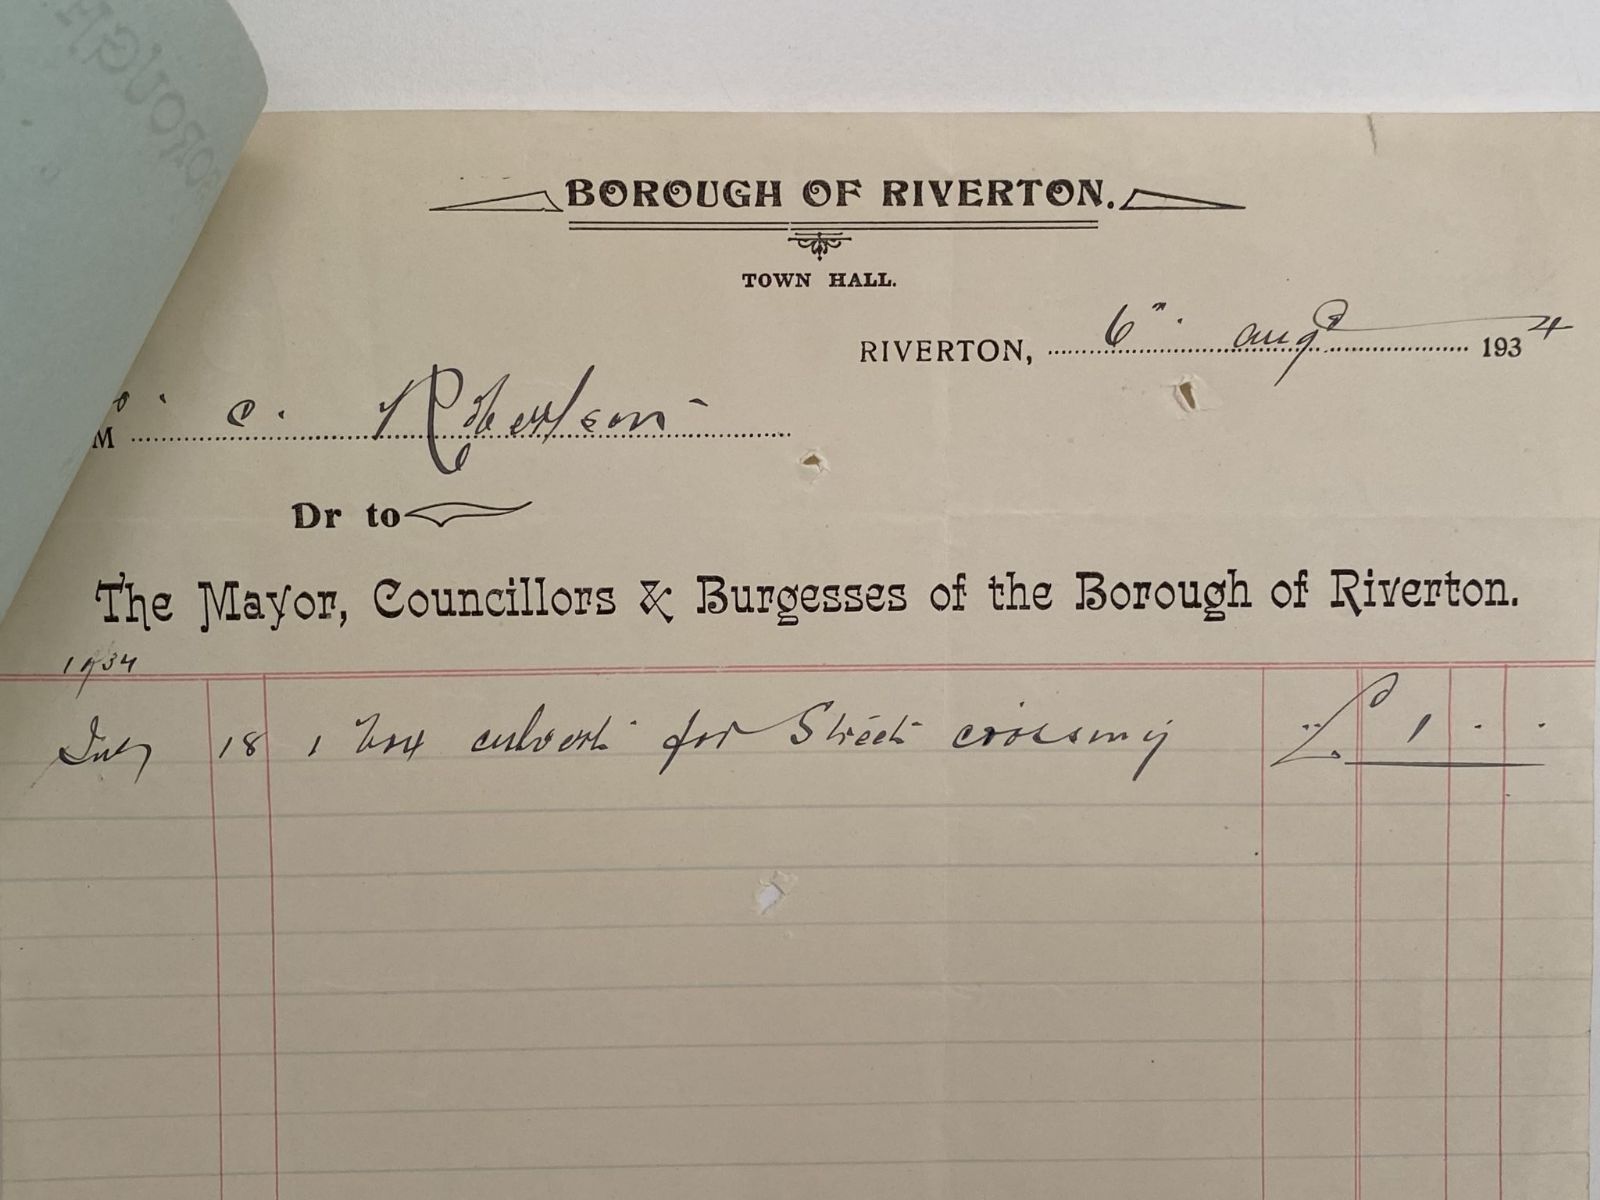 BOROUGH
BOROUGH OF RIVERTON.
TOWN HALL.
RIVERTON, 6th Augt 1934
M C. Robertson
Dr to
The Mayor, Councillors & Burgesses of the Borough of Riverton.
1934
July 18 1 box culvert for Street crossing £ 1 . .